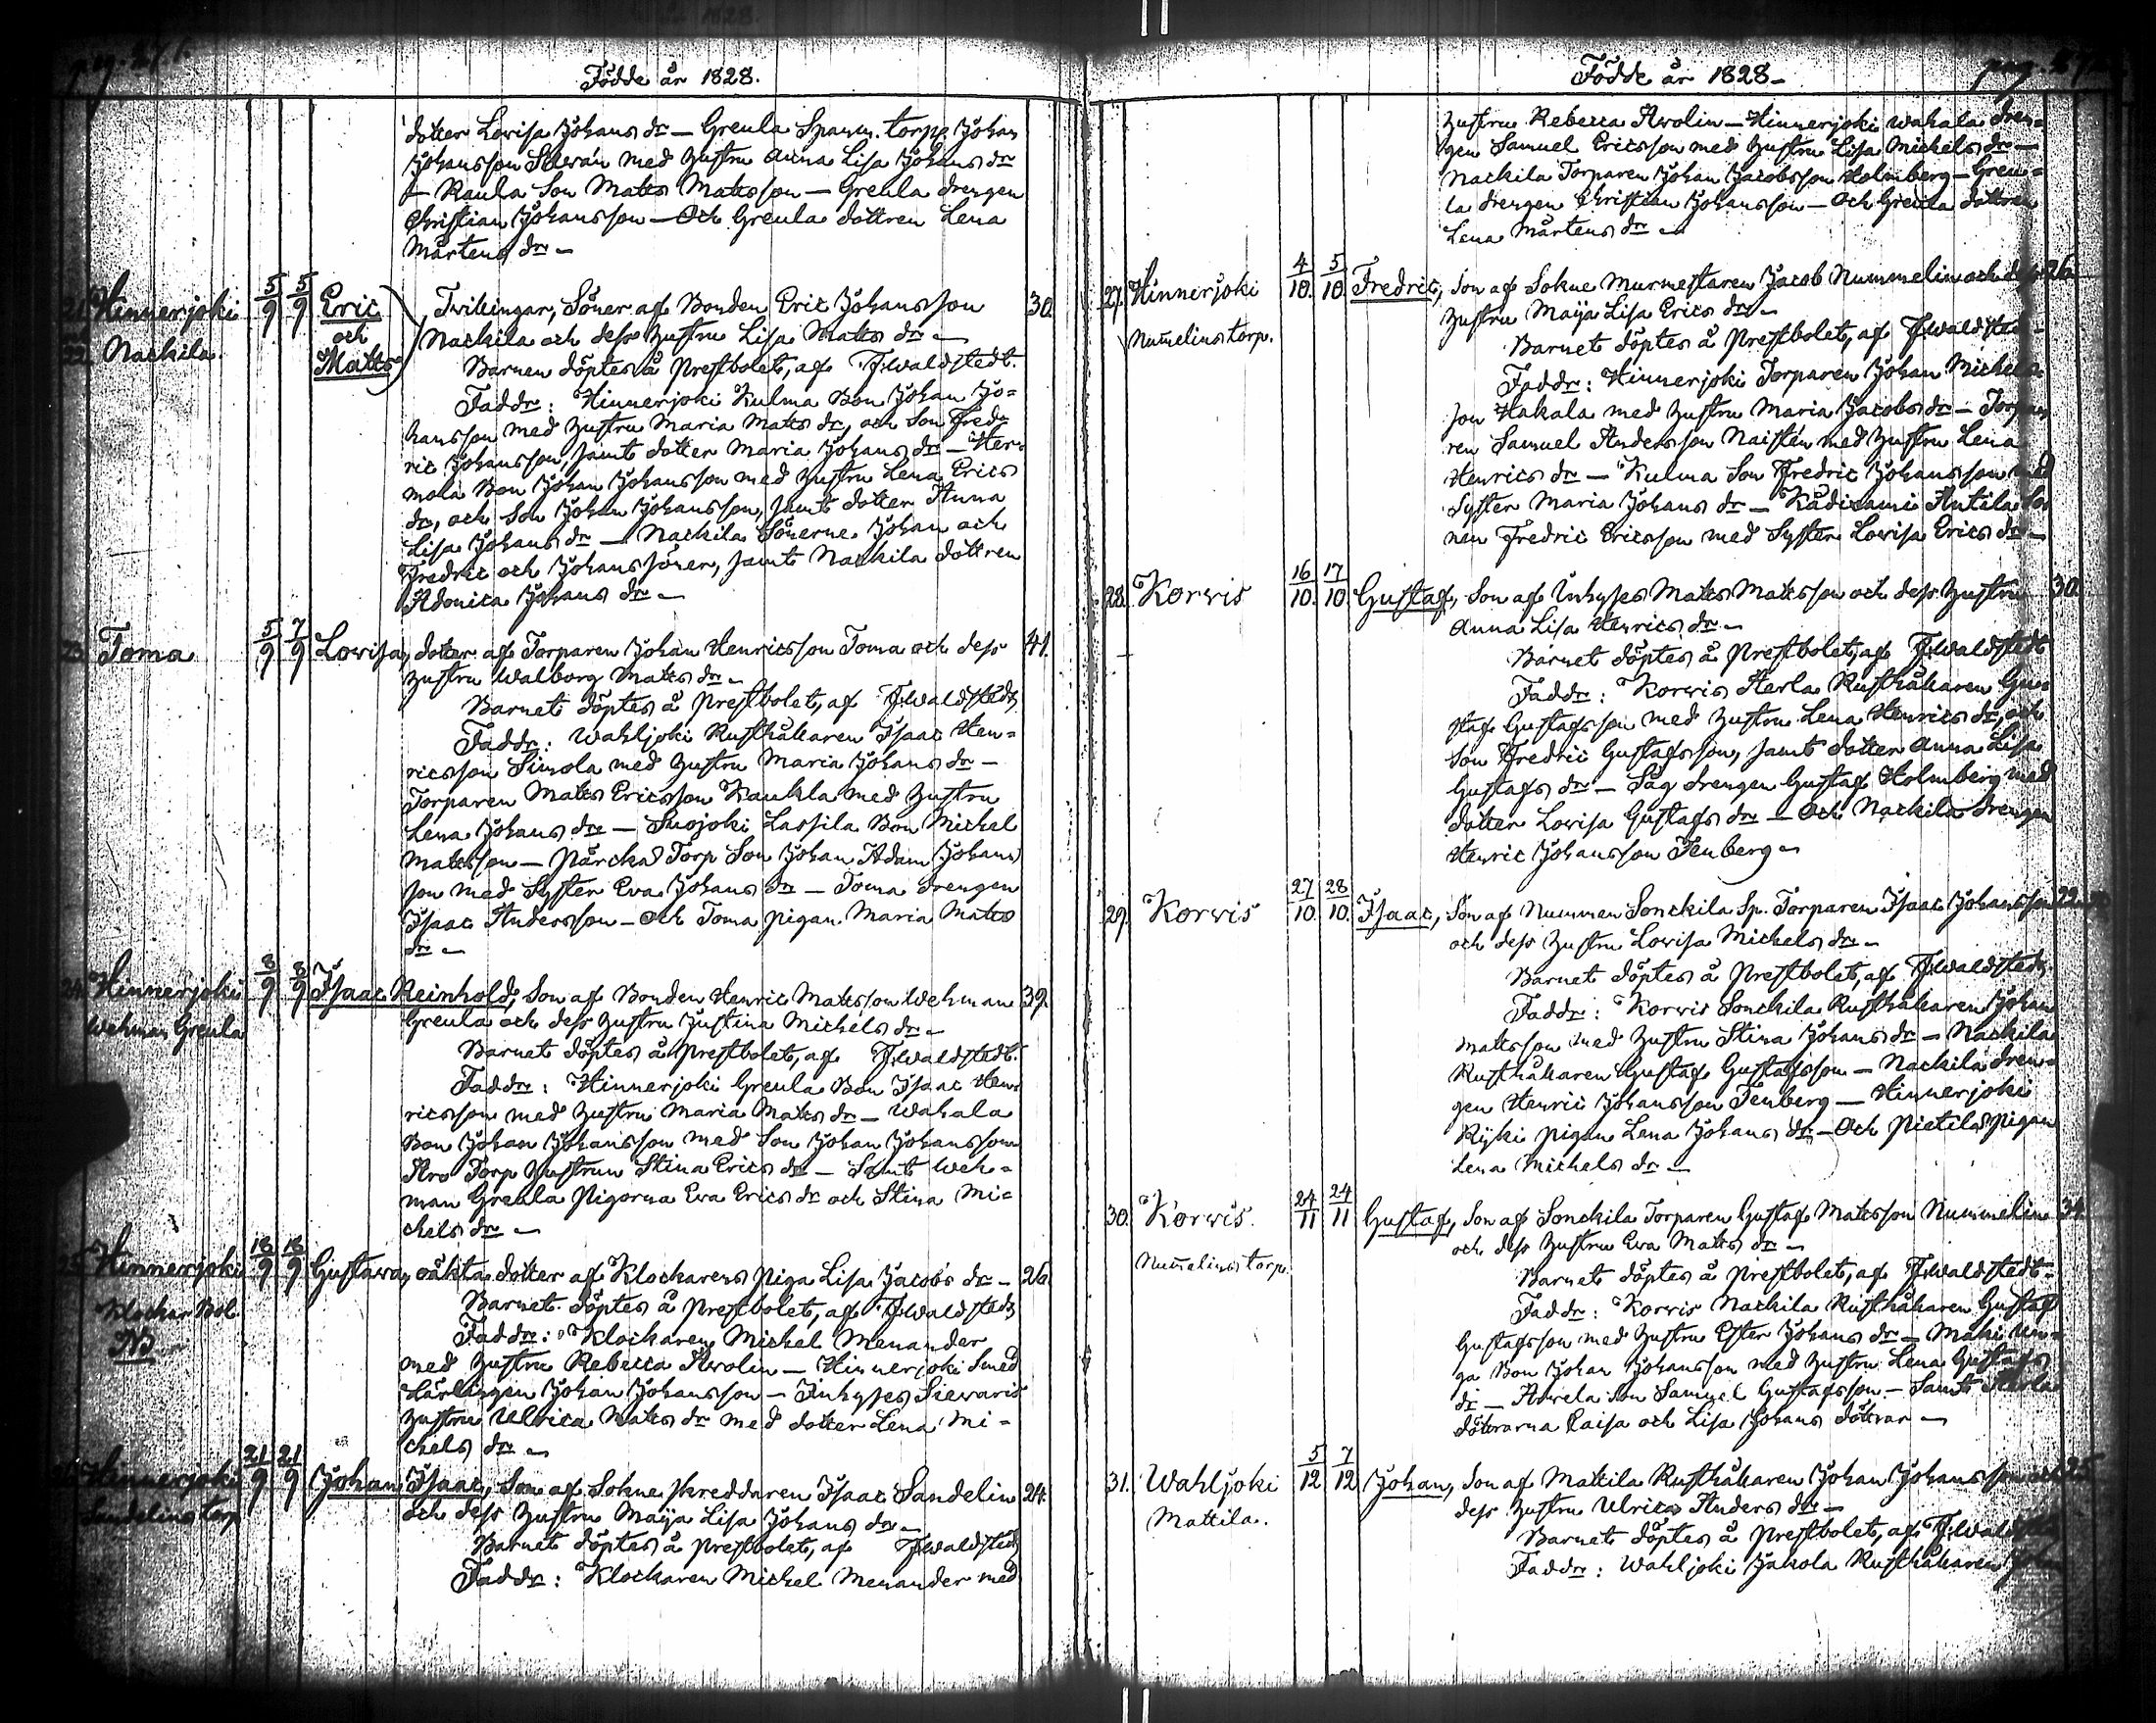 Födde år 1828.
dotter Lovisa Johans dr — Greula Spanm. torp. Johan
Johansson med hustru Anna Lisa Johans dr
— Raula Son Matts Mattsson — Greula drengen
Christian Johansson — Och Greula dottren Lena
Mårtens dr —
21 Hinnerjoki 5/9 5/9 Eric Twillingar, Söner af Bonden Eric Johansson 30.
22 Nackila och Nackila och dess hustru Lisa Matts dr —
Matts Barnen döptes å Prestbolet, af F. Waldstedt.
Faddr: Hinnerjoki Kulma Bon Johan Jo=
hansson med hustru Maria Matts dr, och Son Fred=
ric Johansson, samt dotter Maria Johans dr — Her=
mola Bon Johan Johansson med hustru Lena Erics
dr, och Son Johan Johansson, samt dotter Anna
Lisa Johans dr — Nackila Sönerne Johan och
Fredric och Johans söner, samt Nackila dottren
Adonica Johans dr —
23 Toma 5/9 7/9 Lovisa, dotter af Torparen Johan Henricsson Toma och dess 41.
hustru Walborg Matts dr —
Barnet döptes å Prestbolet, af F. Waldstedt
Faddr: Wahljoki Rusthållaren Isaac Hen=
ricsson Simola med hustru Maria Johans dr —
Torparen Matts Ericsson Kaukla med hustru
Lena Johans dr — Suojoki Lassila Bon Michel
Mattsson — Pärckä Torp Son Johan Adam Johans
son med Syster Eva Johans dr — Toma drengen
Isaac Andersson — Och Toma pigan Maria Matts
dr —
24 Hinnerjoki 8/9 8/9 Isaac Reinhold, Son af Bonden Henric Mattsson Wehman 39.
Wehman Greula Greula och dess hustru Justina Michels dr —
Barnet döptes å Prestbolet, af F. Waldstedt.
Faddr: Hinnerjoki Greula Bon Isaac Hen=
ricsson med hustru Maria Matts dr — Wahala
Bon Johan Johansson med Son Johan Johansson
Aro Torp hustrun Stina Erics dr — Samt Weh=
man Greula Pigorna Eva Erics dr och Stina Mi=
chels dr —
25 Hinnerjoki 18/9 18/9 Gustava, oäkta dotter af Klockarens Piga Lisa Jacobs dr — 26
Klockar Bol Barnet döptes å Prestbolet, af F. Waldstedt
Faddr: Klockaren Michel Menander
med hustru Rebecca Arolin — Hinnerjoki Smed
Lärlingen Johan Johansson — Inhyses Siewaris
hustru Ulrica Matts dr med dotter Lena Mi=
chels dr —
Hinnerjoki 21/9 21/9 Johan Isaac, Son af Sokne skreddaren Isaac Sandelin 24.
Sandelins torp och dess hustru Maija Lisa Johans dr —
Barnet döptes å Prestbolet, af F. Waldstedt
Faddr: Klockaren Michel Menander med
Födde år 1828 —
hustru Rebecca Arolin — Hinnerjoki Wahala dren=
gen Samuel Ericsson med hustru Lisa Michels dr —
Nackila Torparen Johan Jacobsson Holmberg — Greu=
la drengen Christian Johansson — Och Greula dottren
Lena Mårtens dr —
27. Hinnerjoki 4/10. 5/10. Fredric, Son af Sokne Murmestaren Jacob Nummelin och dess 26
Num̅elins torp. hustru Maija Lisa Erics dr —
Barnet döptes å Prestbolet, af F. Waldstedt
Faddr: Hinnerjoki Torparen Johan Michels
son Hakala med hustru Maria Jacobs dr — Torpa
ren Samuel Andersson Naistén med hustru Lena
Henrics dr — Kulma Son Fredric Johansson med
Syster Maria Johans dr — Kådisami Antila So
nen Fredric Ericsson med Syster Lovisa Erics dr —
28. Korvis 16/10. 17/10 Gustaf, Son af Inhyses Matts Mattsson och dess hustru 30.
Anna Lisa Henrics dr —
Barnet döptes å Prestbolet, af F. Waldstedt
Faddr: Korvis Herla Rusthållaren Gu=
staf Gustafsson med hustru Lena Henrics dr, och
Son Fredric Gustafsson, samt dotter Anna Lisa
Gustafs dr — Såg drengen Gustaf Holmberg med
dotter Lovisa Gustafs dr — Och Nackila drengen
Henric Johansson Tenberg —
29. Korvis 27/10. 28/10. Isaac, Son af Nummen Sonckila Sp. Torparen Isaac Johansson 22
och dess hustru Lovisa Michels dr —
Barnet döptes å Prestbolet, af F. Waldstedt.
Faddr: Korvis Sonckila Rusthållaren Johan
Mattsson med hustru Stina Johans dr — Nackila
Rusthållaren Gustaf Gustafsson — Nackila dren=
gen Henric Johansson Tenberg — Hinnerjoki
Kyki pigan Lena Johans dr — Och Pietilä pigan
Lena Michels dr —
30. Korvis. 24/11 24/11 Gustaf, Son af Sonckila Torparen Gustaf Mattsson Nummelin 34.
Num̅elins torp. och dess hustru Eva Matts dr —
Barnet döptes å Prestbolet, af F. Waldstedt
Faddr: Korvis Nackila Rusthållaren Gustaf
Gustafsson med hustru Ester Johans dr — Maki Un=
ga Bon Johan Johansson med hustru Lena Gustafs
dr — Son Samuel Gustafsson — Samt
dötrarna Caisa och Lisa Johans döttrar —
31. Wahljoki 5/12 7/12 Johan, Son af Mattila Rusthållaren Johan Johansson och 25
Mattila. dess hustru Ulrica Anders dr —
Barnet döptes å Prestbolet, af F. Waldstedt
Faddr: Wahljoki Jakola Rusthållaren